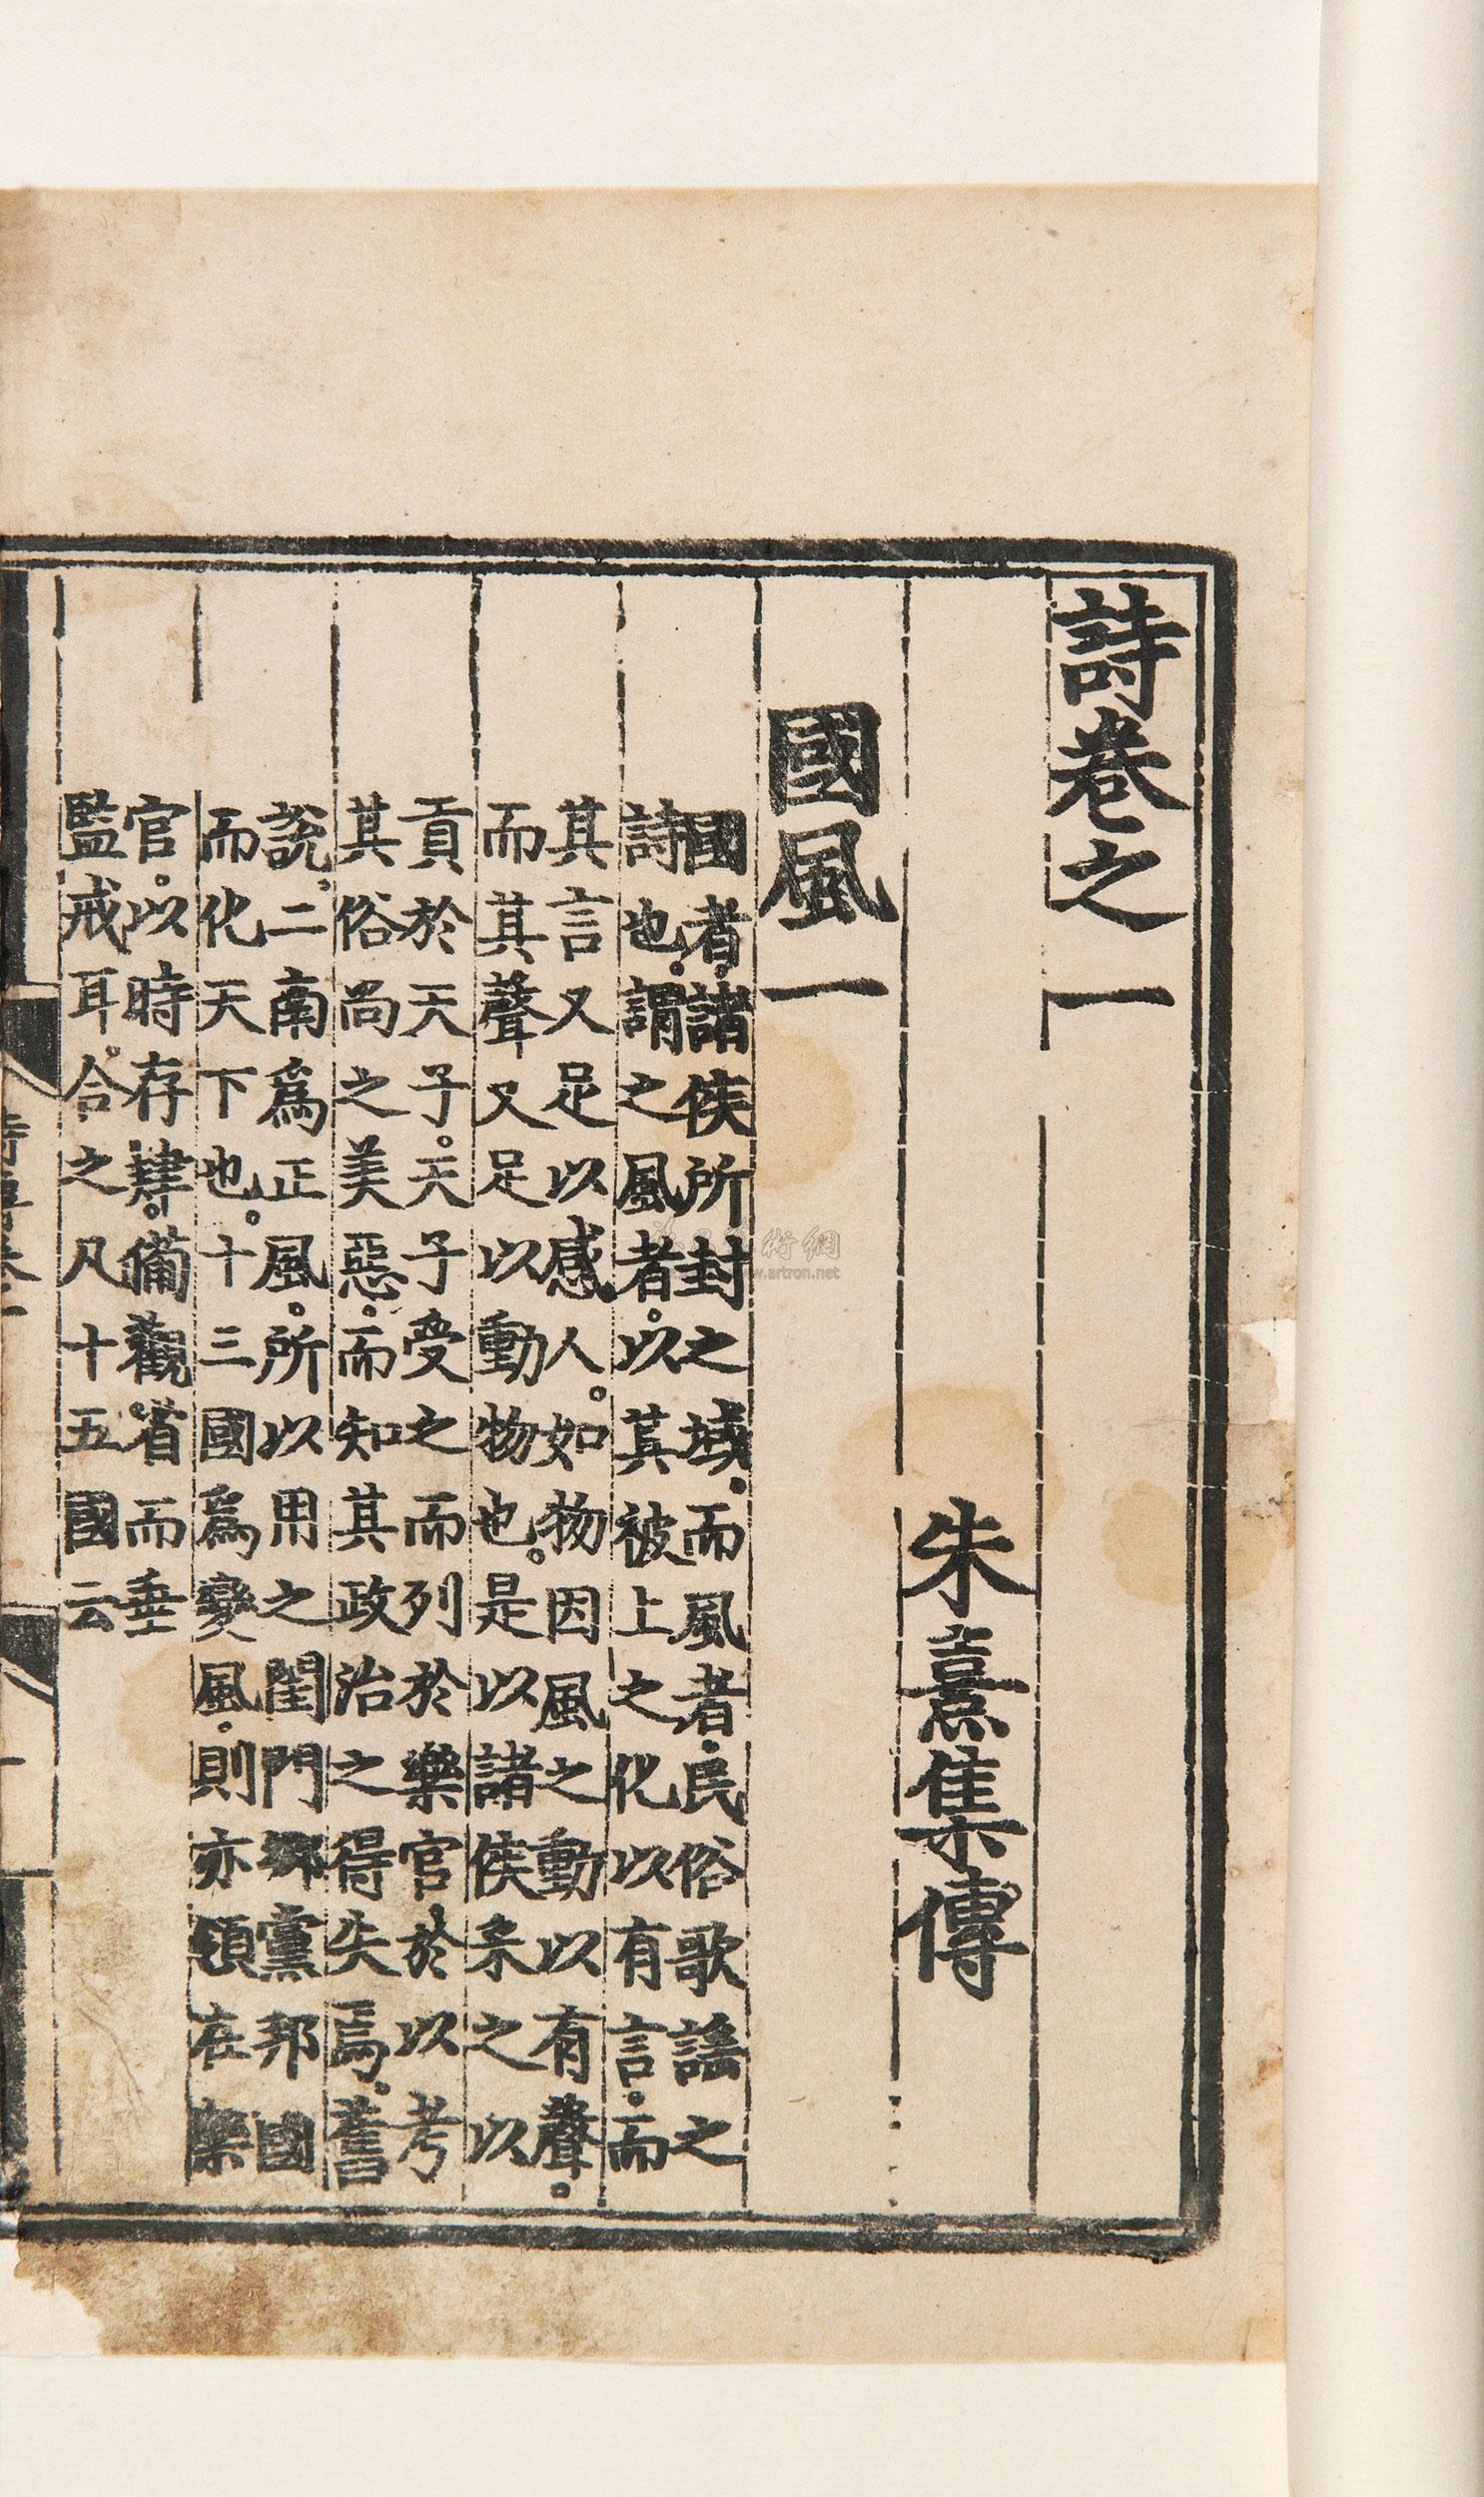 詩卷之一
朱熹集傳
國風一
國者。諸侯所封之域。而風者。民俗歌謠之
詩也。謂之風者。以其被上之化以有言。而
其言又足以感人。如物因風之動以有聲。
而其聲又足以動物也。是以諸侯采之以
貢於天子。天子受之而列於樂官於以考
其俗尚之美惡。而知其政治之得失焉。舊
說。二南爲正風。所以用之閨門鄉黨邦國
而化天下也。十三國爲變風。則亦領在樂
官。以時存肄。備觀省而垂
監戒耳。合之凡十五國云
術網
.artron.net